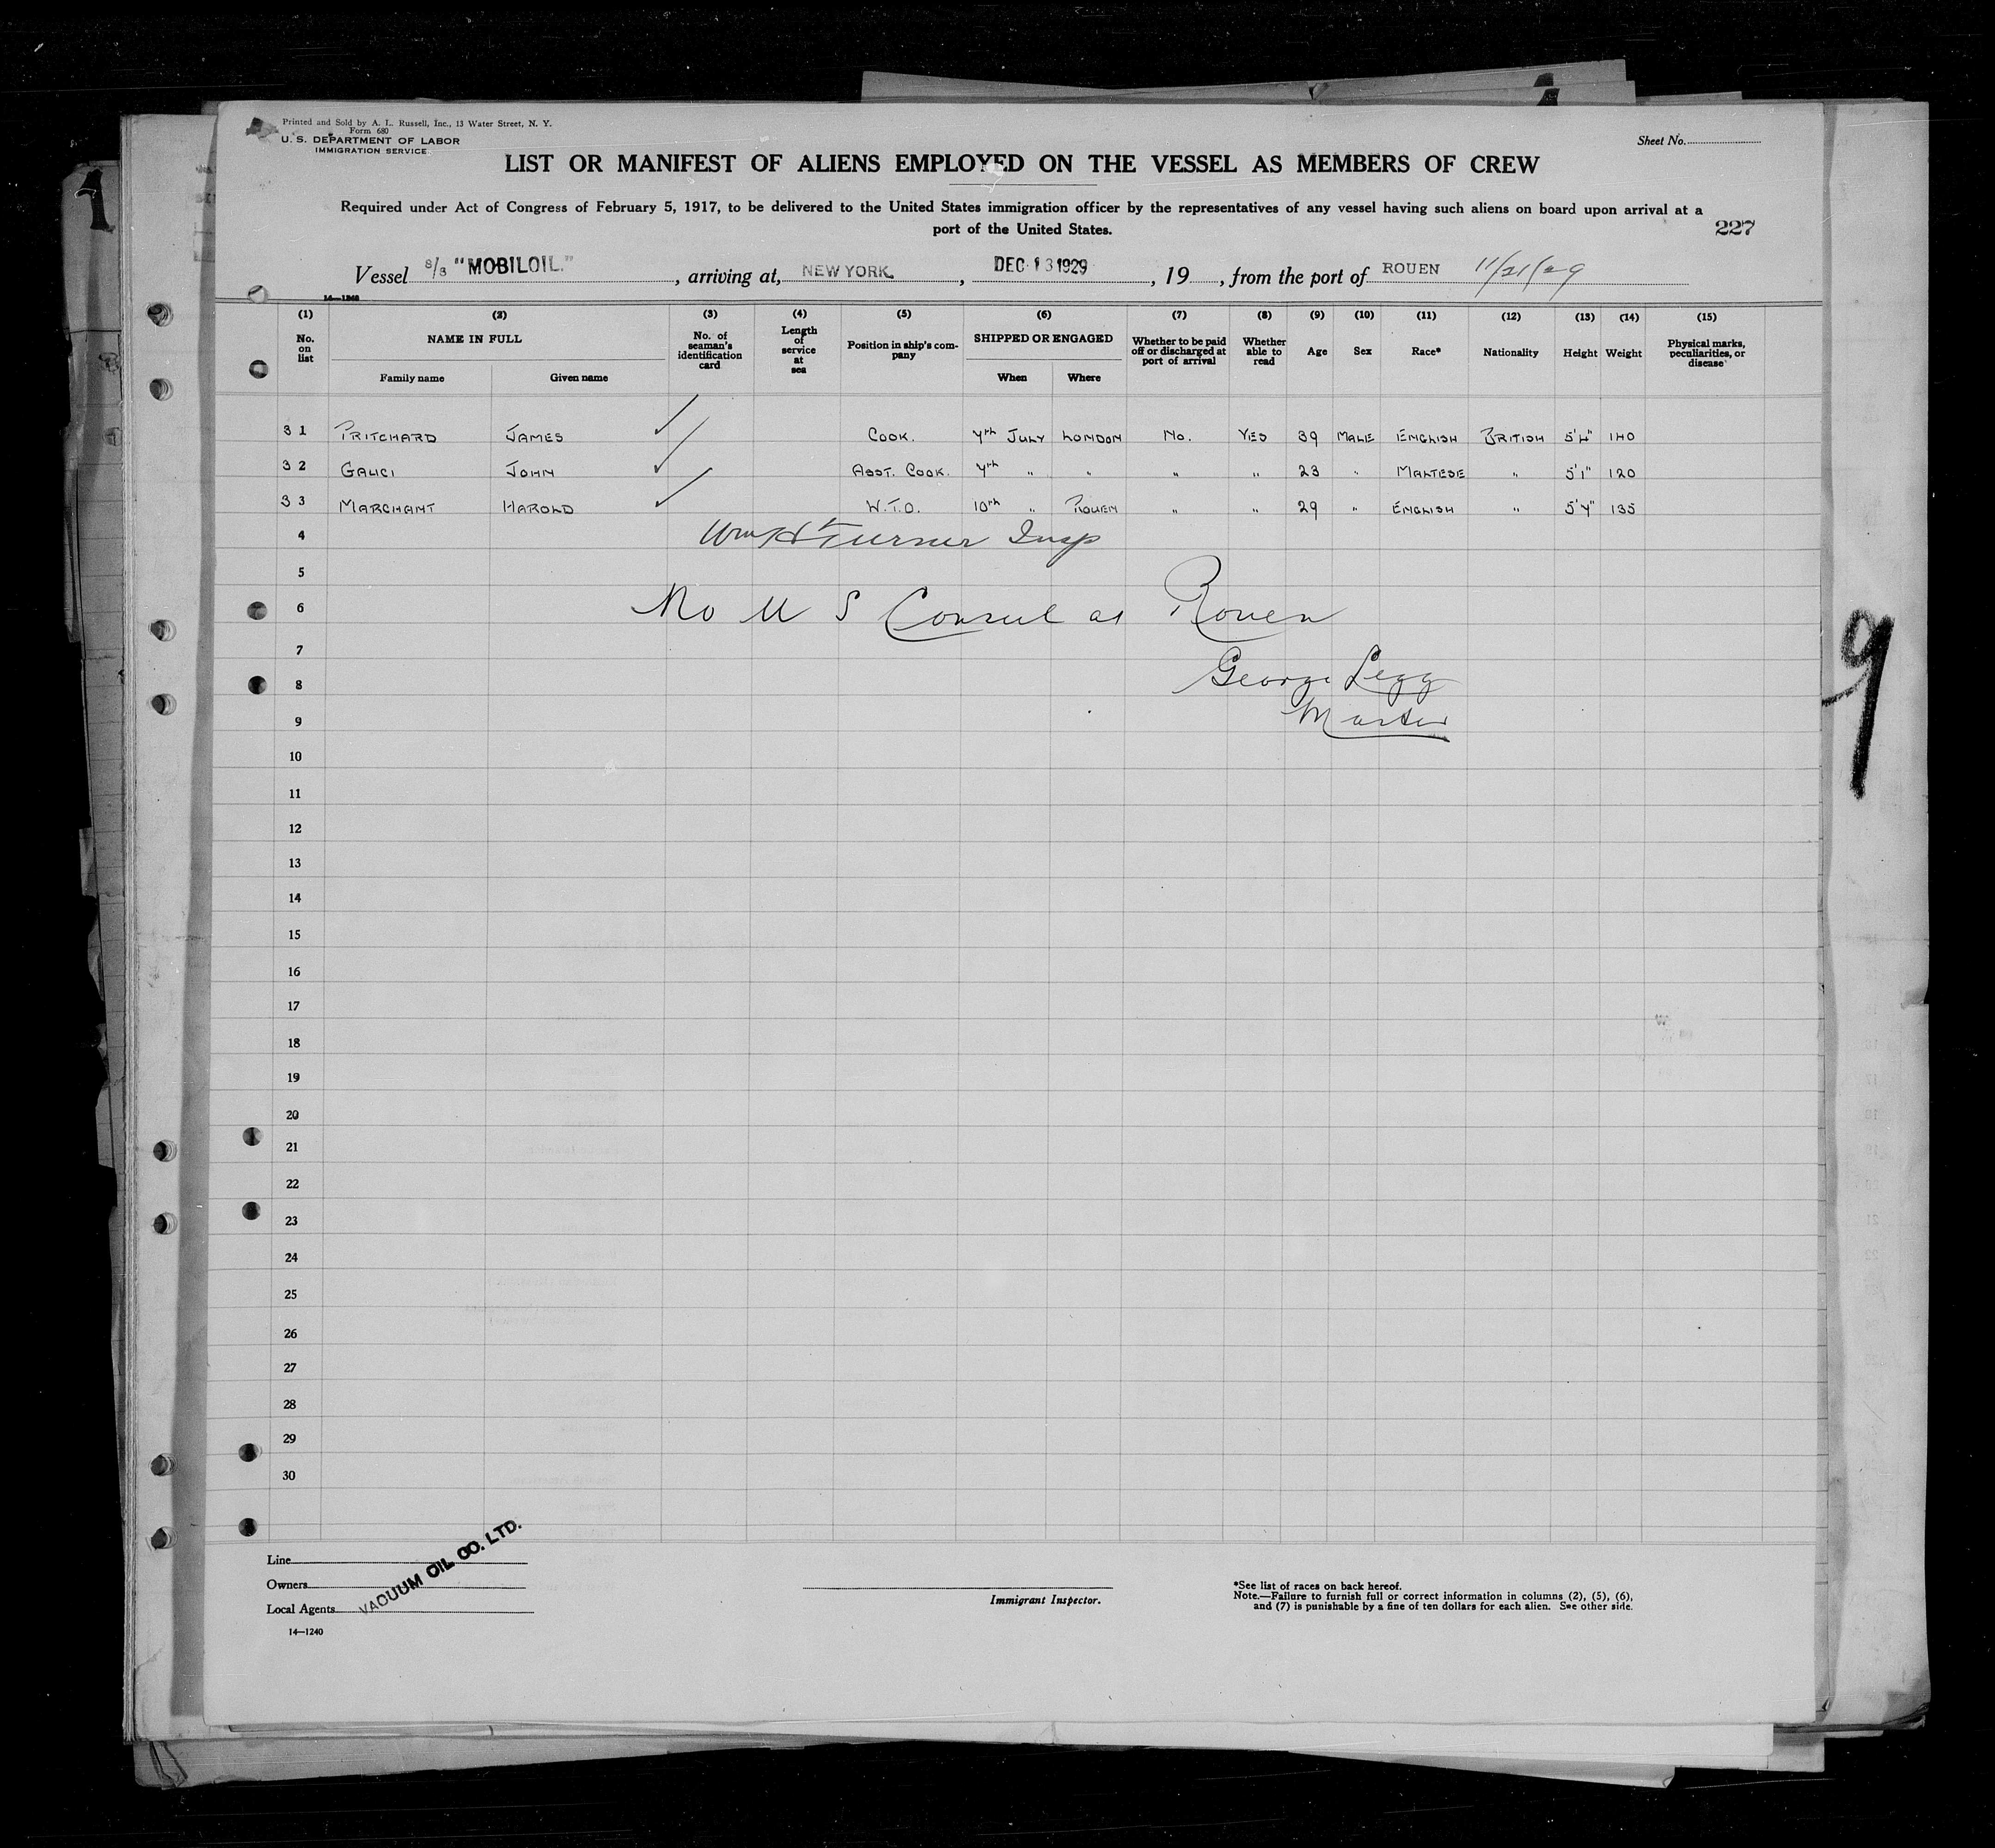 Printed and Sold by A. L. Russell, Inc., 13 Water Street, N. Y.
Form 680
U. S. DEPARTMENT OF LABOR
IMMIGRATION SERVICE
Sheet No.
LIST OR MANIFEST OF ALIENS EMPLOYED ON THE VESSEL AS MEMBERS OF CREW
Required under Act of Congress of February 5, 1917, to be delivered to the United States immigration officer by the representatives of any vessel having such aliens on board upon arrival at a
port of the United States.
227
Vessel S/S "MOBILOIL.", arriving at, NEW YORK, DEC 13 1929, 19, from the port of ROUEN 11/21/29
14—1240
(1) (2) (3) (4) (5) (6) (7) (8) (9) (10) (11) (12) (13) (14) (15)
No. on list NAME IN FULL No. of seaman's identification card Length of service at sea Position in ship's company SHIPPED OR ENGAGED Whether to be paid off or discharged at port of arrival Whether able to read Age Sex Race* Nationality Height Weight Physical marks, peculiarities, or disease
Family name Given name When Where
31 PRITCHARD JAMES COOK. 4th JULY LONDON No. YES 39 MALE ENGLISH BRITISH 5'4" 140
32 GAUCI JOHN ASST. COOK. 4th " " " " 23 " MALTESE " 5'1" 120
33 MARCHANT HAROLD W.T.O. 10th " ROUEN " " 29 " ENGLISH " 5'4" 135
4 Wm H Turner Insp
5
6 No U S Consul at Rouen
7
8 George Legg
9 Master
10
11
12
13
14
15
16
17
18
19
20
21
22
23
24
25
26
27
28
29
30
9
Line
Owners
Local Agents
VACUUM OIL CO. LTD.
14—1240
Immigrant Inspector.
*See list of races on back hereof.
Note.—Failure to furnish full or correct information in columns (2), (5), (6),
and (7) is punishable by a fine of ten dollars for each alien. See other side.